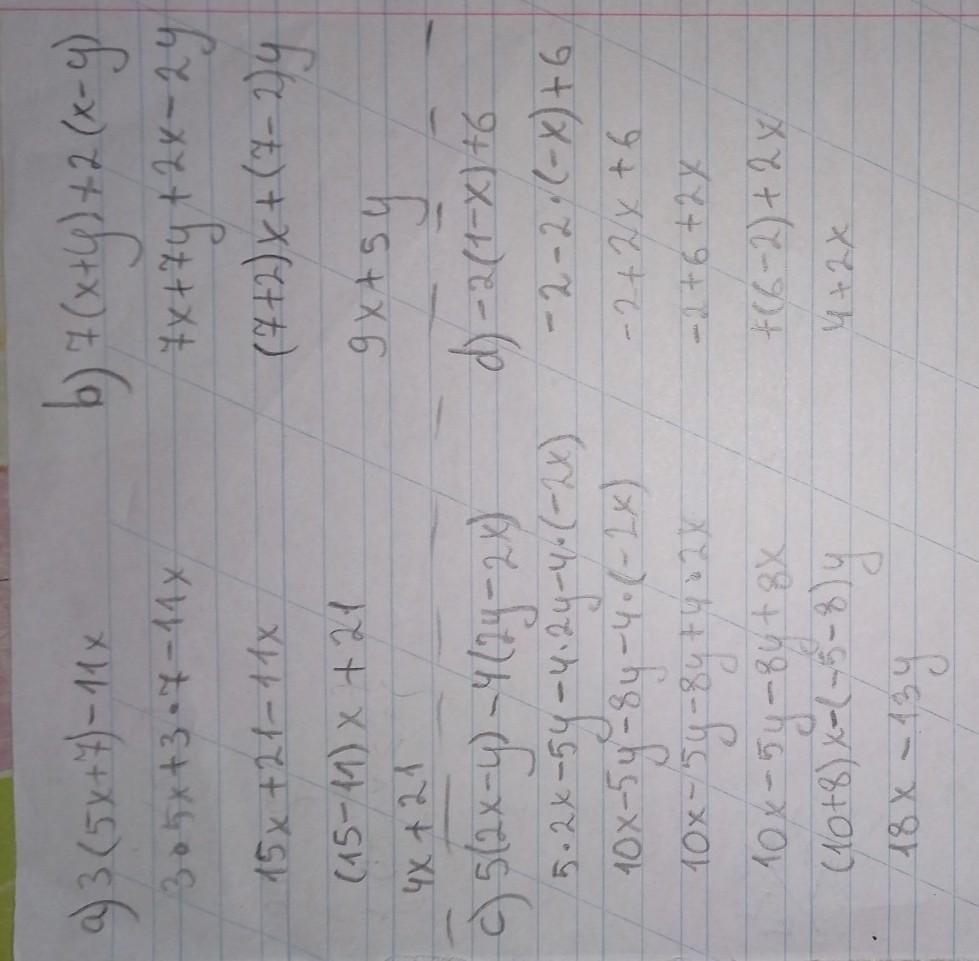 a) 3(5x+7)-11x
3•5x+3•7-11x
15x+21-11x
(15-11)x+21
4x+21
b) 7(x+y)+2(x-y)
7x+7y+2x-2y
(7+2)x+(7-2)y
9x+5y
c) 5(2x-y)-4(2y-2x)
5•2x-5y-4•2y-4•(-2x)
10x-5y-8y-4•(-2x)
10x-5y-8y+4•2x
10x-5y-8y+8x
(10+8)x-(-5-8)y
18x-13y
d) -2(1-x)+6
-2-2•(-x)+6
-2+2x+6
-2+6+2x
+(6-2)+2x
4+2x